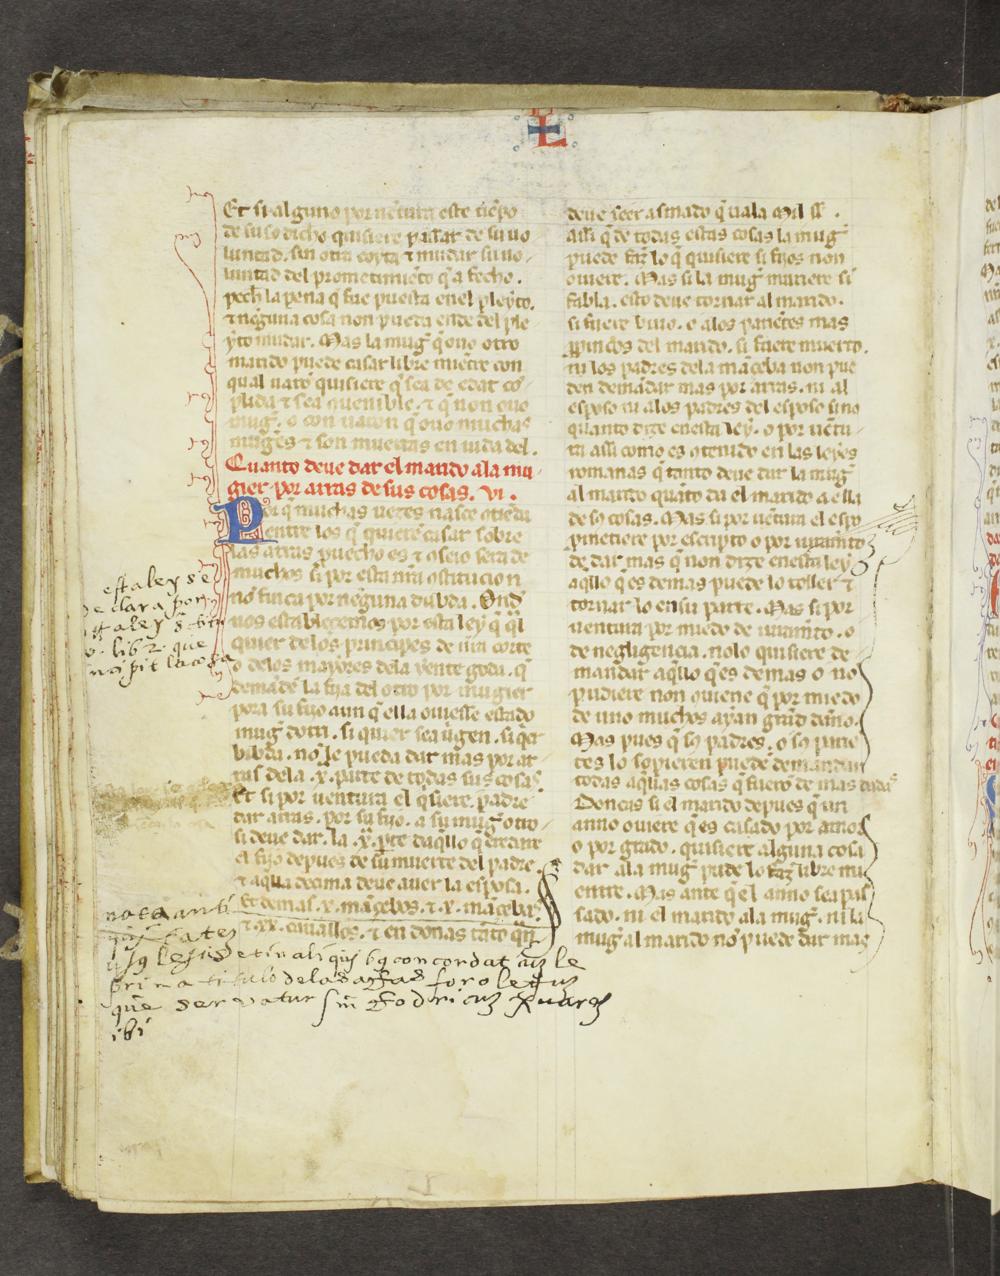 L
Et si alguno por uẽtura este tiẽpo
de suso dicho quisiere passar de su uo
luntad. sin otra coyta ⁊ mudar su uo
luntad del prometimiẽto q̃ a fecho.
pech la pena q̃ fue puesta en el pleyto.
⁊ nẽguna cosa non pueda ende del ple
yto mudar. Mas la mug̃ q̃ ouo otro
marido puede casar libre miẽtre con
qual uarõ quisiere q̃ sea de edat cõ
plida ⁊ sea auenible. ⁊ q̃ non ouo
mug̃. o con uaron q̃ ouo muchas
mugẽs ⁊ son muertas en uida del.
Cuanto deue dar el marido ala mu
gier por arras de sus cosas. vi.
Por q̃ muchas uezes nasce
entre los q̃ quierẽ casar sobre
las arras puecho es ⁊ sera de
muchos si por esta nr̃a ostitucion
nõ finca por nẽguna dubda. Onđ
nos establecemos por esta ley q̃ q̃l
quier de los principes de nr̃a corte
o delos mayores dela yente goda. q̃
demãde la fija del otro por mugier
pora su fijo aun q̃ ella ouiesse estado
mug̃ dotri. si quier sea uirgen. si q̃er
bibda. no le pueda dar mas por ar
ras dela .x. parte de todas sus cosas.
Et si por uentura el q̃siere padre
dar arras. por su fijo. a su mug̃ otro
si deue dar. la .x. pte daq̃llo q̃
el fijo depues de su muerte del padre.
⁊ aq̃lla decima deue auer la esposa.
Et demas .x. mãcebos. ⁊ .x. mãcebas.
⁊ .xx. cauallos. ⁊ en donas tãto q̃nto
deue seer asmado q̃ uala Mil ss̃.
assi q̃ de todas estas cosas la mug̃
puede faz̃ lo q̃ quisiere si fijos non
ouiere. Mas si la mug̃ muriere sĩ
fabla. esto deue tornar al marido.
si fuere biuo. o alos pariẽtes mas
ppincos del marido. si fuere muerto.
ni los padres dela mãceba non pue
den demãdar mas por arras. ni al
esposo ni alos padres del esposo sino
quanto dize en esta ley. o por uẽtu
ra assi como es otenido en las leyes
romanas q̃ tanto deue dar la mug̃
al marido quãto da el marido a ella
de sꝯ cosas. Mas si por uẽtura el espo
pmetiere por escripto o por iuramto
de dar mas q̃ non dize en esta ley
aq̃llo q̃ es demas puede lo toller ⁊
tornar lo en su parte. Mas si por
uentura por miedo de iuramto. o
de negligencia. nolo quisiere de
mandar aq̃llo q̃ es demas o no
pudiere non ouiene q̃ por miedo
de uno muchos ayan grãd dãno.
Mas pues q̃ sꝯ padres. o sꝯ parie
tes lo sopieren puedẽ demandar
todas aq̃llas cosas q̃ fuerõ de mas dadas
Doncas si el marido depues q̃ un
anno ouiere q̃ es casado por amor
o por grado. quisiere alguna cosa
dar ala mug̃ puede lo faz̃ libre mi
entre. Mas ante q̃ el anno sea pas
sado. ni el marido ala mug̃. ni la
mug̃ al marido no puede dar mas
esta ley se
declara por
lib 2 que
incipit la cosa
nota
concordat cũ le
prima titulo de las arras foro legum
que servatur xuarez
ibi